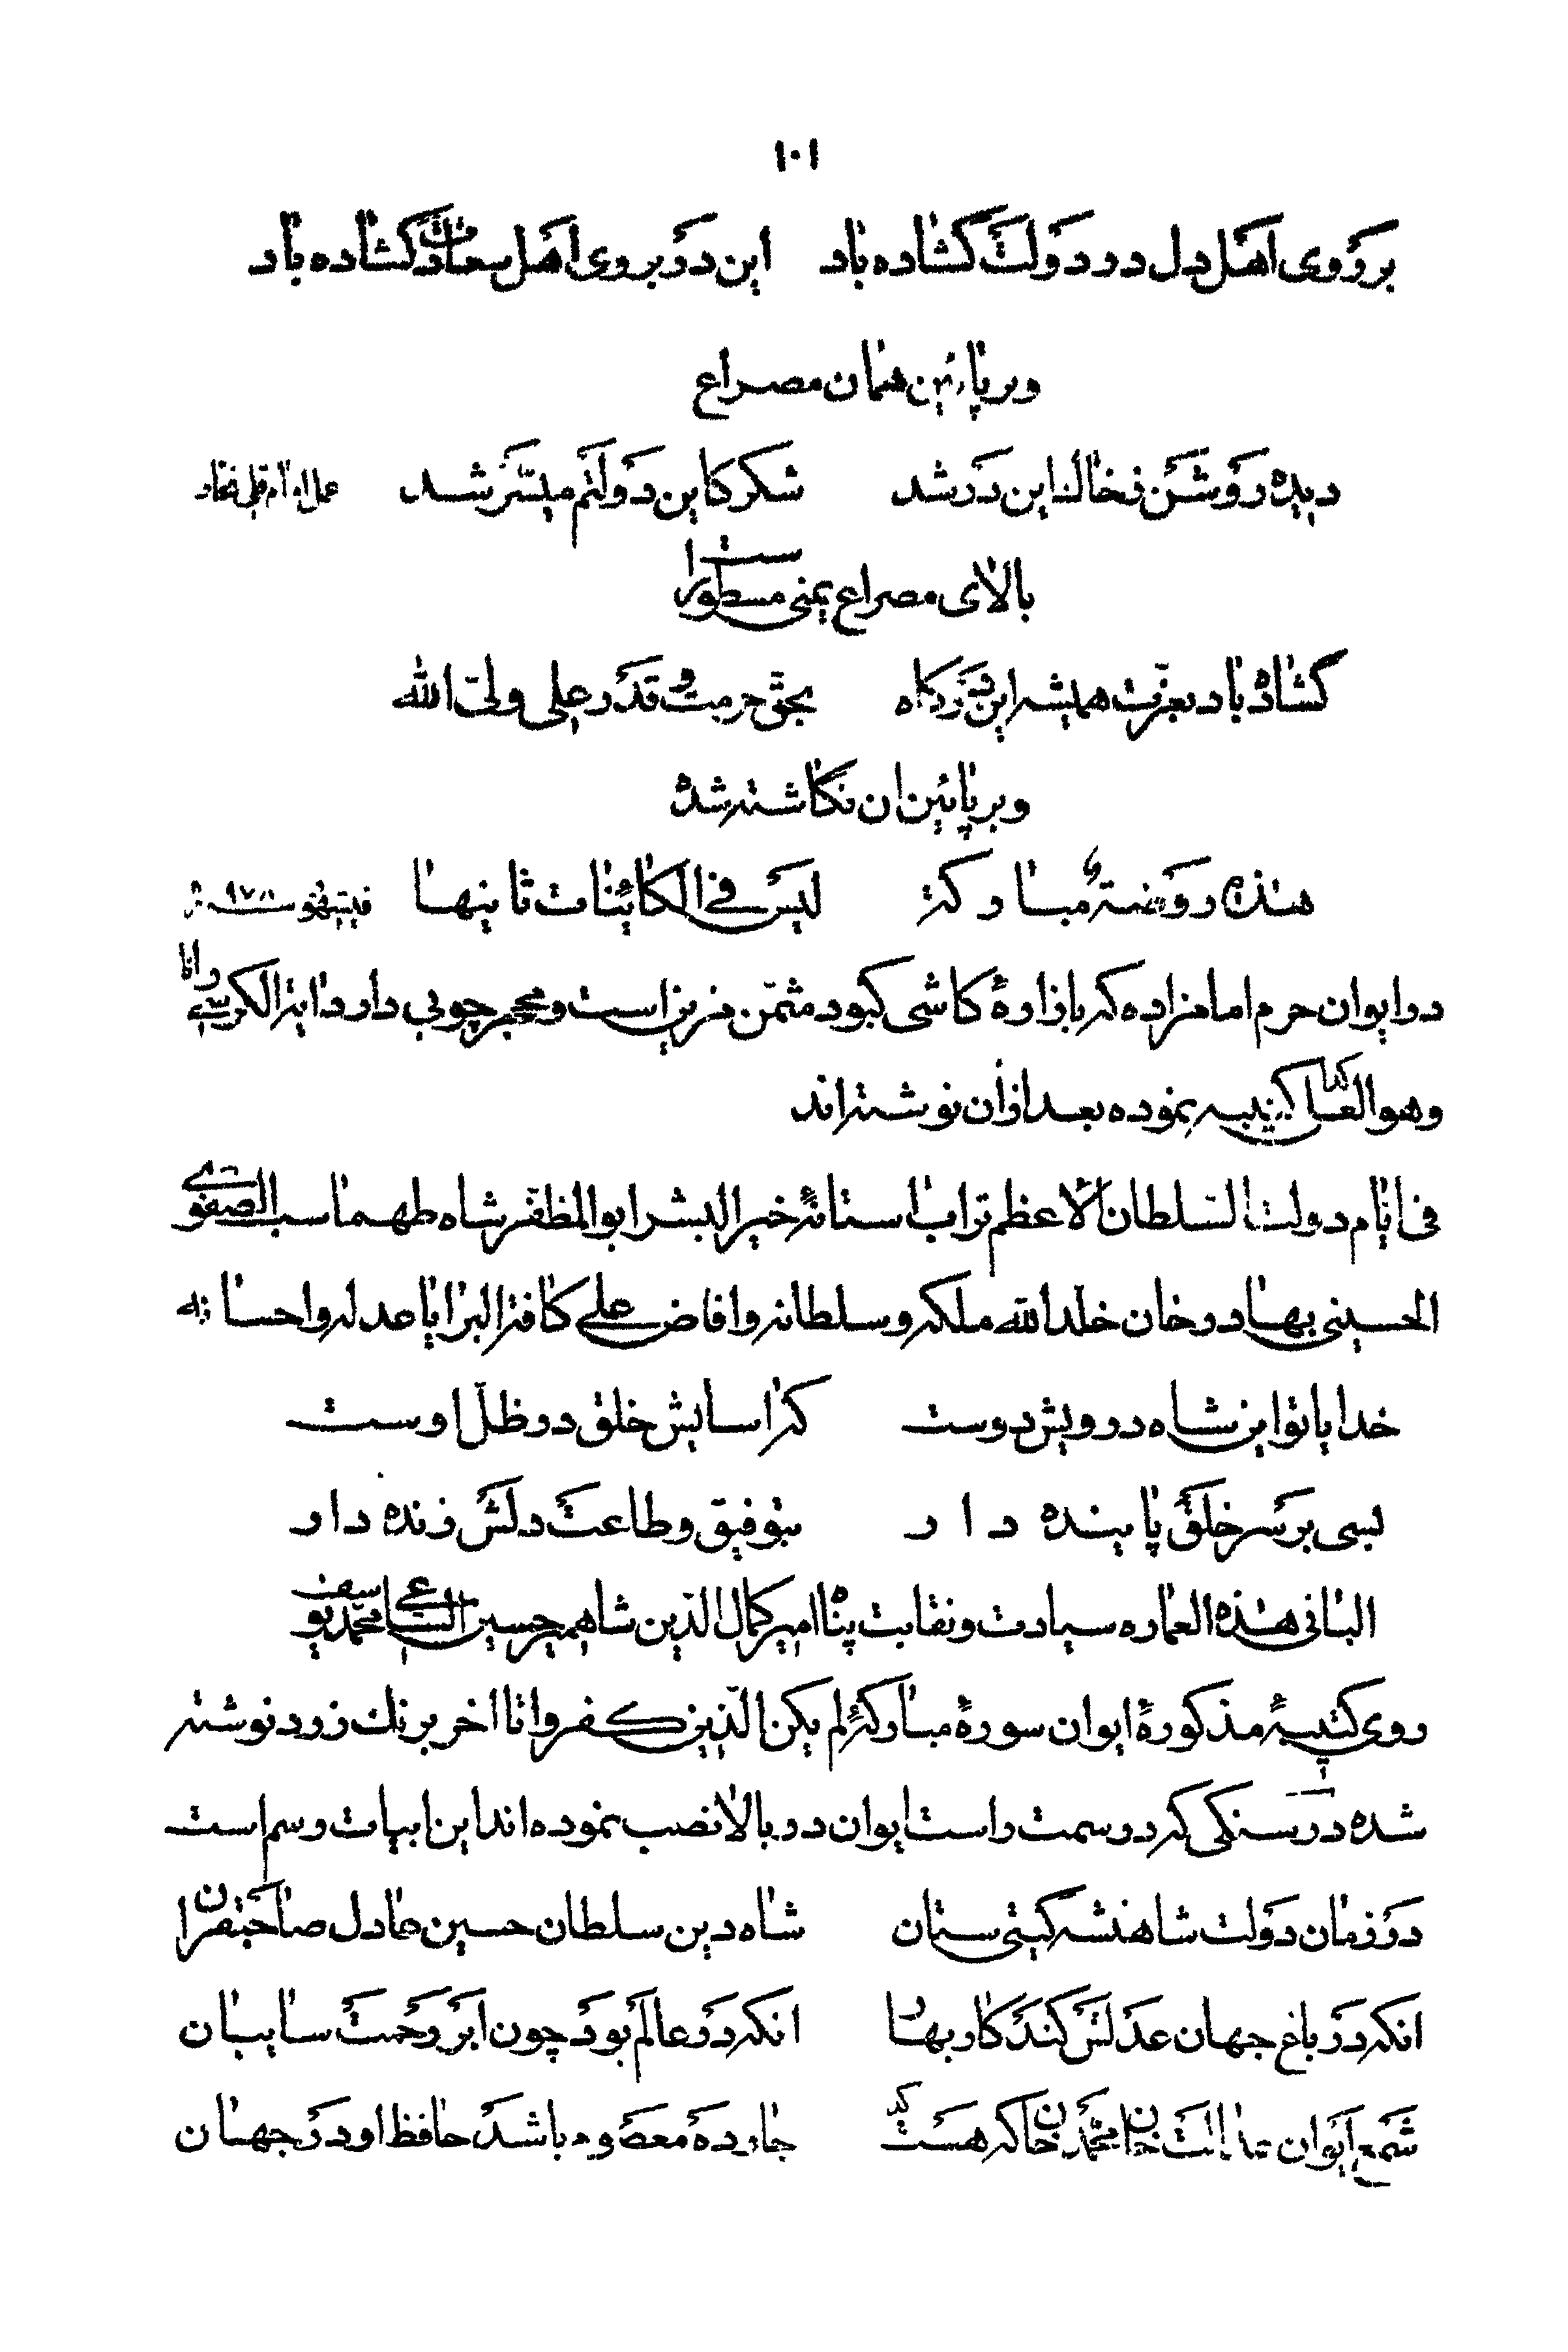 ١٠١
بر روی اهل دل در دولت گشاده باد    این در بروی اهل سعادت گشاده باد
و بر پائین همان مصراع
دیده روشن ز خاک این در شد    شکر کاین دولتم میسّر شد    عمل استاد امام قلی نجار
بالای مصراع یمنی مسطور است
گشاده باد بعزت همیشه این درگاه    بحقّ حرمت و قدر علی ولیّ الله
و بر پائین ان نگاشته شده
هذه روضة مبارکة    لیس فی الکائنات ثانیها    ۹۷۸
در ایوان حرم امامزاده که بازارهٔ کاشی کبود مثمّن مزین است و محجر چوبی دارد ایة الکرسی را تا
و هو العلی کتیبه نموده بعد از ان نوشته اند
فی ایّام دولت السّلطان الاعظم تراب استانهٔ خیر البشر ابو المظفّر شاه طهماسب الصفوی
الحسینی بهادر خان خلّد الله ملکه و سلطانه و افاض علی کافة البرایا عدله و احسانه
خدایا تو این شاه درویش دوست    که اسایش خلق در ظلّ اوست
بسی بر سر خلق پاینده دار    بتوفیق و طاعت دلش زنده دار
البانی هذه العماره سیادت و نقابت پناه امیر کمال الدّین شاهمیر حسین الساعی محمّد یوسف
روی کتیبهٔ مذکورهٔ ایوان سورهٔ مبارکهٔ لم یکن الّذین کفروا تا اخر برنك زرد نوشته
شده در سنگی که در سمت راست ایوان در بالا نصب نموده اند این ابیات رسم است
در زمان دولت شاهنشه گیتی ستان    شاه دین سلطان حسین عادل صاحبقران
انکه در باغ جهان عدلش کند کار بهار    انکه در عالم بود چون ابر رحمت سایبان
شمع ایوان عدالت خان محمّد خان که هست    چارده معصوم باشد حافظ او در جهان